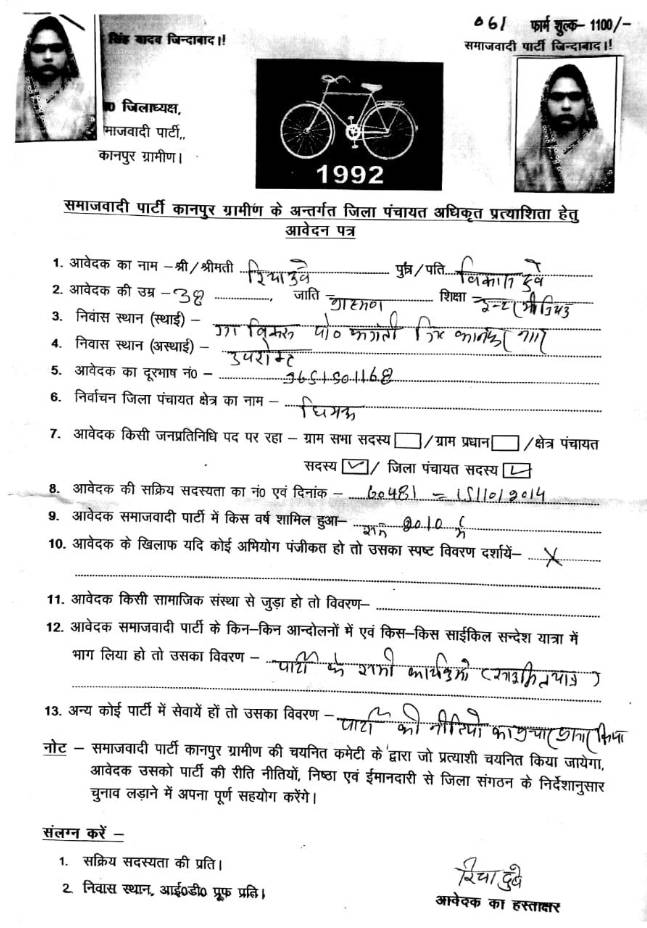 सिंह यादव जिन्दाबाद।!
061 फार्म शुल्क– 1100/-
समाजवादी पार्टी जिन्दाबाद।!
0 जिलाध्यक्ष,
माजवादी पार्टी,,
कानपुर ग्रामीण।
1992
समाजवादी पार्टी कानपुर ग्रामीण के अन्तर्गत जिला पंचायत अधिकृत प्रत्याशिता हेतु
आवेदन पत्र
1. आवेदक का नाम –श्री/श्रीमती रिचा दुबे पुत्र/पति विकास दुबे
2. आवेदक की उम्र – 38 जाति ब्राहमण शिक्षा
3. निवास स्थान (स्थाई) –
4. निवास स्थान (अस्थाई) – उपरोक्त
5. आवेदक का दूरभाष नं0 –
6. निर्वाचन जिला पंचायत क्षेत्र का नाम – घिमऊ
7. आवेदक किसी जनप्रतिनिधि पद पर रहा – ग्राम सभा सदस्य /ग्राम प्रधान /क्षेत्र पंचायत
सदस्य / जिला पंचायत सदस्य
8. आवेदक की सक्रिय सदस्यता का नं0 एवं दिनांक – 60481 = 15/10/2014
9. आवेदक समाजवादी पार्टी में किस वर्ष शामिल हुआ– सन 2010 में
10. आवेदक के खिलाफ यदि कोई अभियोग पंजीकत हो तो उसका स्पष्ट विवरण दर्शायें– X
11. आवेदक किसी सामाजिक संस्था से जुड़ा हो तो विवरण–
12. आवेदक समाजवादी पार्टी के किन–किन आन्दोलनों में एवं किस–किस साईकिल सन्देश यात्रा में
भाग लिया हो तो उसका विवरण – पार्टी के सभी कार्यक्रमो
13. अन्य कोई पार्टी में सेवायें हों तो उसका विवरण – पार्टी की नीतियो का प्रचार प्रसार किया
नोट – समाजवादी पार्टी कानपुर ग्रामीण की चयनित कमेटी के द्वारा जो प्रत्याशी चयनित किया जायेगा,
आवेदक उसको पार्टी की रीति नीतियों, निष्ठा एवं ईमानदारी से जिला संगठन के निर्देशानुसार
चुनाव लड़ाने में अपना पूर्ण सहयोग करेंगे।
संलग्न करें –
1. सक्रिय सदस्यता की प्रति।
2 निवास स्थान, आई0डी0 प्रूफ प्रति।
रिचा दुबे
आवेदक का हस्ताक्षर